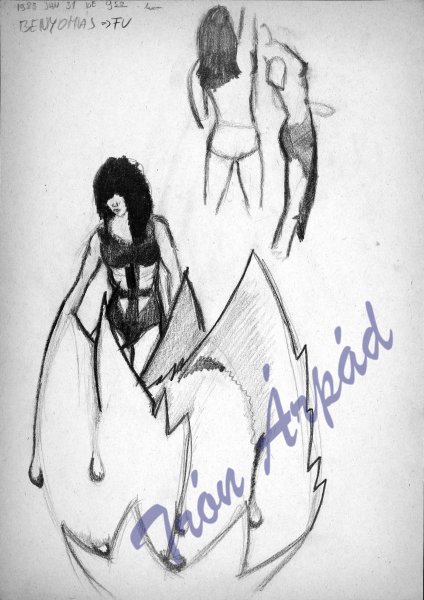 1989 JAN 31 DE 9
BENYOMÁS => FU
Irón Árpád